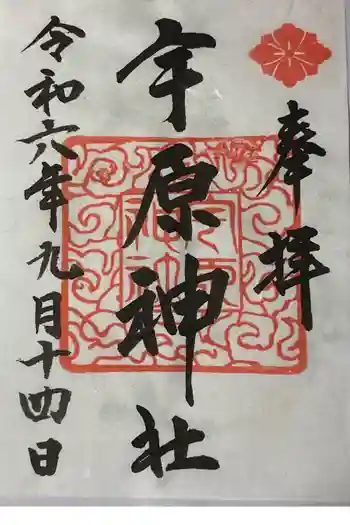 奉拝
宇原神社
令和六年九月十四日